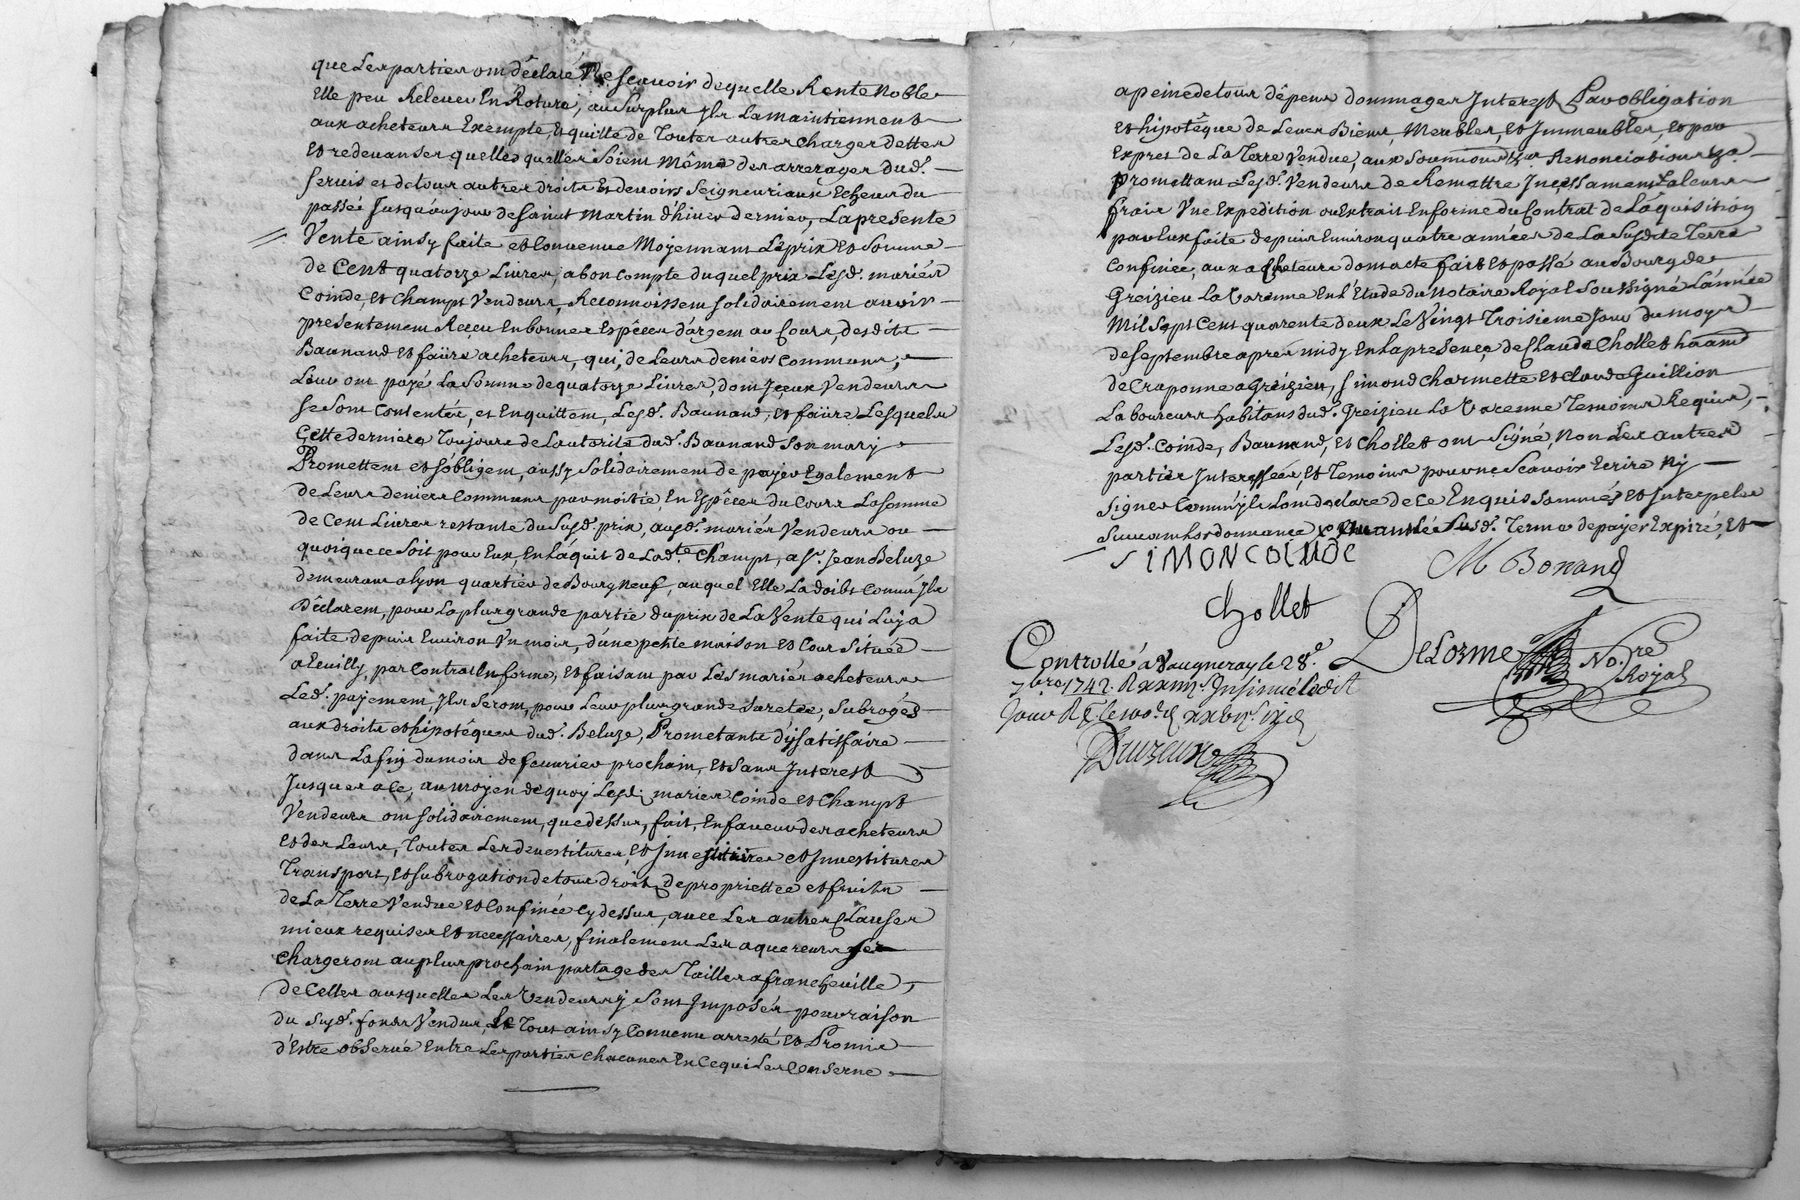 que Les parties ont déclaré Ne scavoir de quelle Rente Noble
Elle peu Relever En Roture, au surplus Ils La maintiennent
aux acheteurs Exempte, Et quitte de Toutes autres charges dettes
Et redevanses quelles quelles soient Même des arrerages dud.
servis et de tous autres droits Et devoirs Seigneuriaux Echeus du
passé Jusqu'au jour de saint Martin d'hiver dernier, La presente
Vente ainsy faite et Convenue Moyennant Le prix Et Somme
de Cent quatorze Livres, a bon compte duquel prix Lesd. mariés
Coinde, Et Champt Vendeurs, Reconnoissent solidairement avoir
presentement Receu En bonnes Espêces d'argent au Cours, desdits
Baunand Et faüre acheteurs, qui, de Leurs deniers communs,
Leur ont payé La Somme de quatorze Livres, dont Iceux Vendeurs
se sont Contentés, et En quittent, Lesd. Baunand, et faüre Lesquels
Cette derniere Toujours de Lautorité dud. Baunand son mary
Promettent et s'obligent, aussy solidairement de payer Egalement
de Leurs deniers Communs par moitié, En Espêces du Cours La somme
de Cent Livres restante du Susd. prix, ausd. mariés Vendeurs ou
quoique ce soit pour Eux, En L'aquit de Lad.te Champt, a Sr. Jean Beluze
demeurant a Lyon quartier de Bourg Neuf, auquel Elle La doibt Comm'Ils
Déclarent, pour La plus grande partie du prix de La Vente qui Luy a
faite depuis Environ Un mois, d'une petite maison Et Cour Située
a Teuilly, par Contrat En forme, Et faisant par Les mariés acheteurs
Led. payement, Ils seront, pour Leur plus grande Sureteé, Subrogés
aux droits et hipotêques dud. Beluze, Prometants d'y satisfaire
dans La fin du mois de fevrier prochain, Et sans Interest
Jusques a Ce, au moyen de quoy Lesd. mariés Coinde Et Champt
Vendeurs ont solidairement, que dessus, fait, En faveur des acheteurs
Et des Leurs, Toutes Les devestitures, Et Investitures et Investitures
Transport, Et subrogation de tous droits de proprietteé et fruits
de La Terre Vendue Et Confinée Cy dessus, avec Les autres Clauses
mieux requises Et necessaires, finalement Les aquereurs se
Chargeront au plus prochain partage des Tailles a francheville,
de Celles ausquelles Les Vendeurs y sont Imposés pour raison
du Susd. fonds Vendus, Le Tout ainsy Convenu arresté Et Promis
d'Estre observé Entre Les parties chacunes En Ce qui Les Conserne
a peine de tous dêpens dommages Interest Par obligation
Et hipotêque de Leurs Biens Meubles, Et Immeubles, Et par
Expres de La Terre Vendue, aux soumissions Renonciations
Promettant Lesd. Vendeurs de Remettre Incessament a leurs
frais Une Expedition ou Extrait En forme du Contrat de Laquisition
par Eux faite depuis Environ quatre années de La Susdite Terre
Confinée, aux acheteurs dont acte fait Et passé au Bourg de
Greizieu La Varenne En L'Etude du Notaire Royal Soussigné L'année
Mil sept Cent quarente deux Le Vingt Troisieme Jour du moys
de septembre apres midy En La presence de Claude Chollet
de Craponne a Greizieu, Simond Charmette et Claude Guillion
Laboureurs habitans dud. Greizieu La Varenne Temoins Requis,
Lesd. Coinde, Baunand, Et Chollet ont signé, Non Les autres
parties Interessées, Et Temoins pour ne Scavoir Ecrire Ny
signer Comm'Ils Lont declaré de Ce Enquis sommés et Interpelés
suivant Lordonnance Susd. Terme de payer Expiré, Et
SIMON COINDE
M Bonand
Chollet
DeLorme No.re
Royal
Controllé a Vaugneray le 28.e
7bre 1742. R Insinué Ledit
Jour R